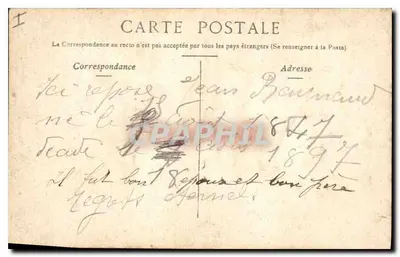 I
CARTE POSTALE
La Correspondance au recto n'est pas acceptée par tous les pays étrangers (Se renseigner à la Poste)
Correspondance
Adresse
Ici repose Jean
né le 1847
1897
Il fut bon époux et bon père
Regrets éternels